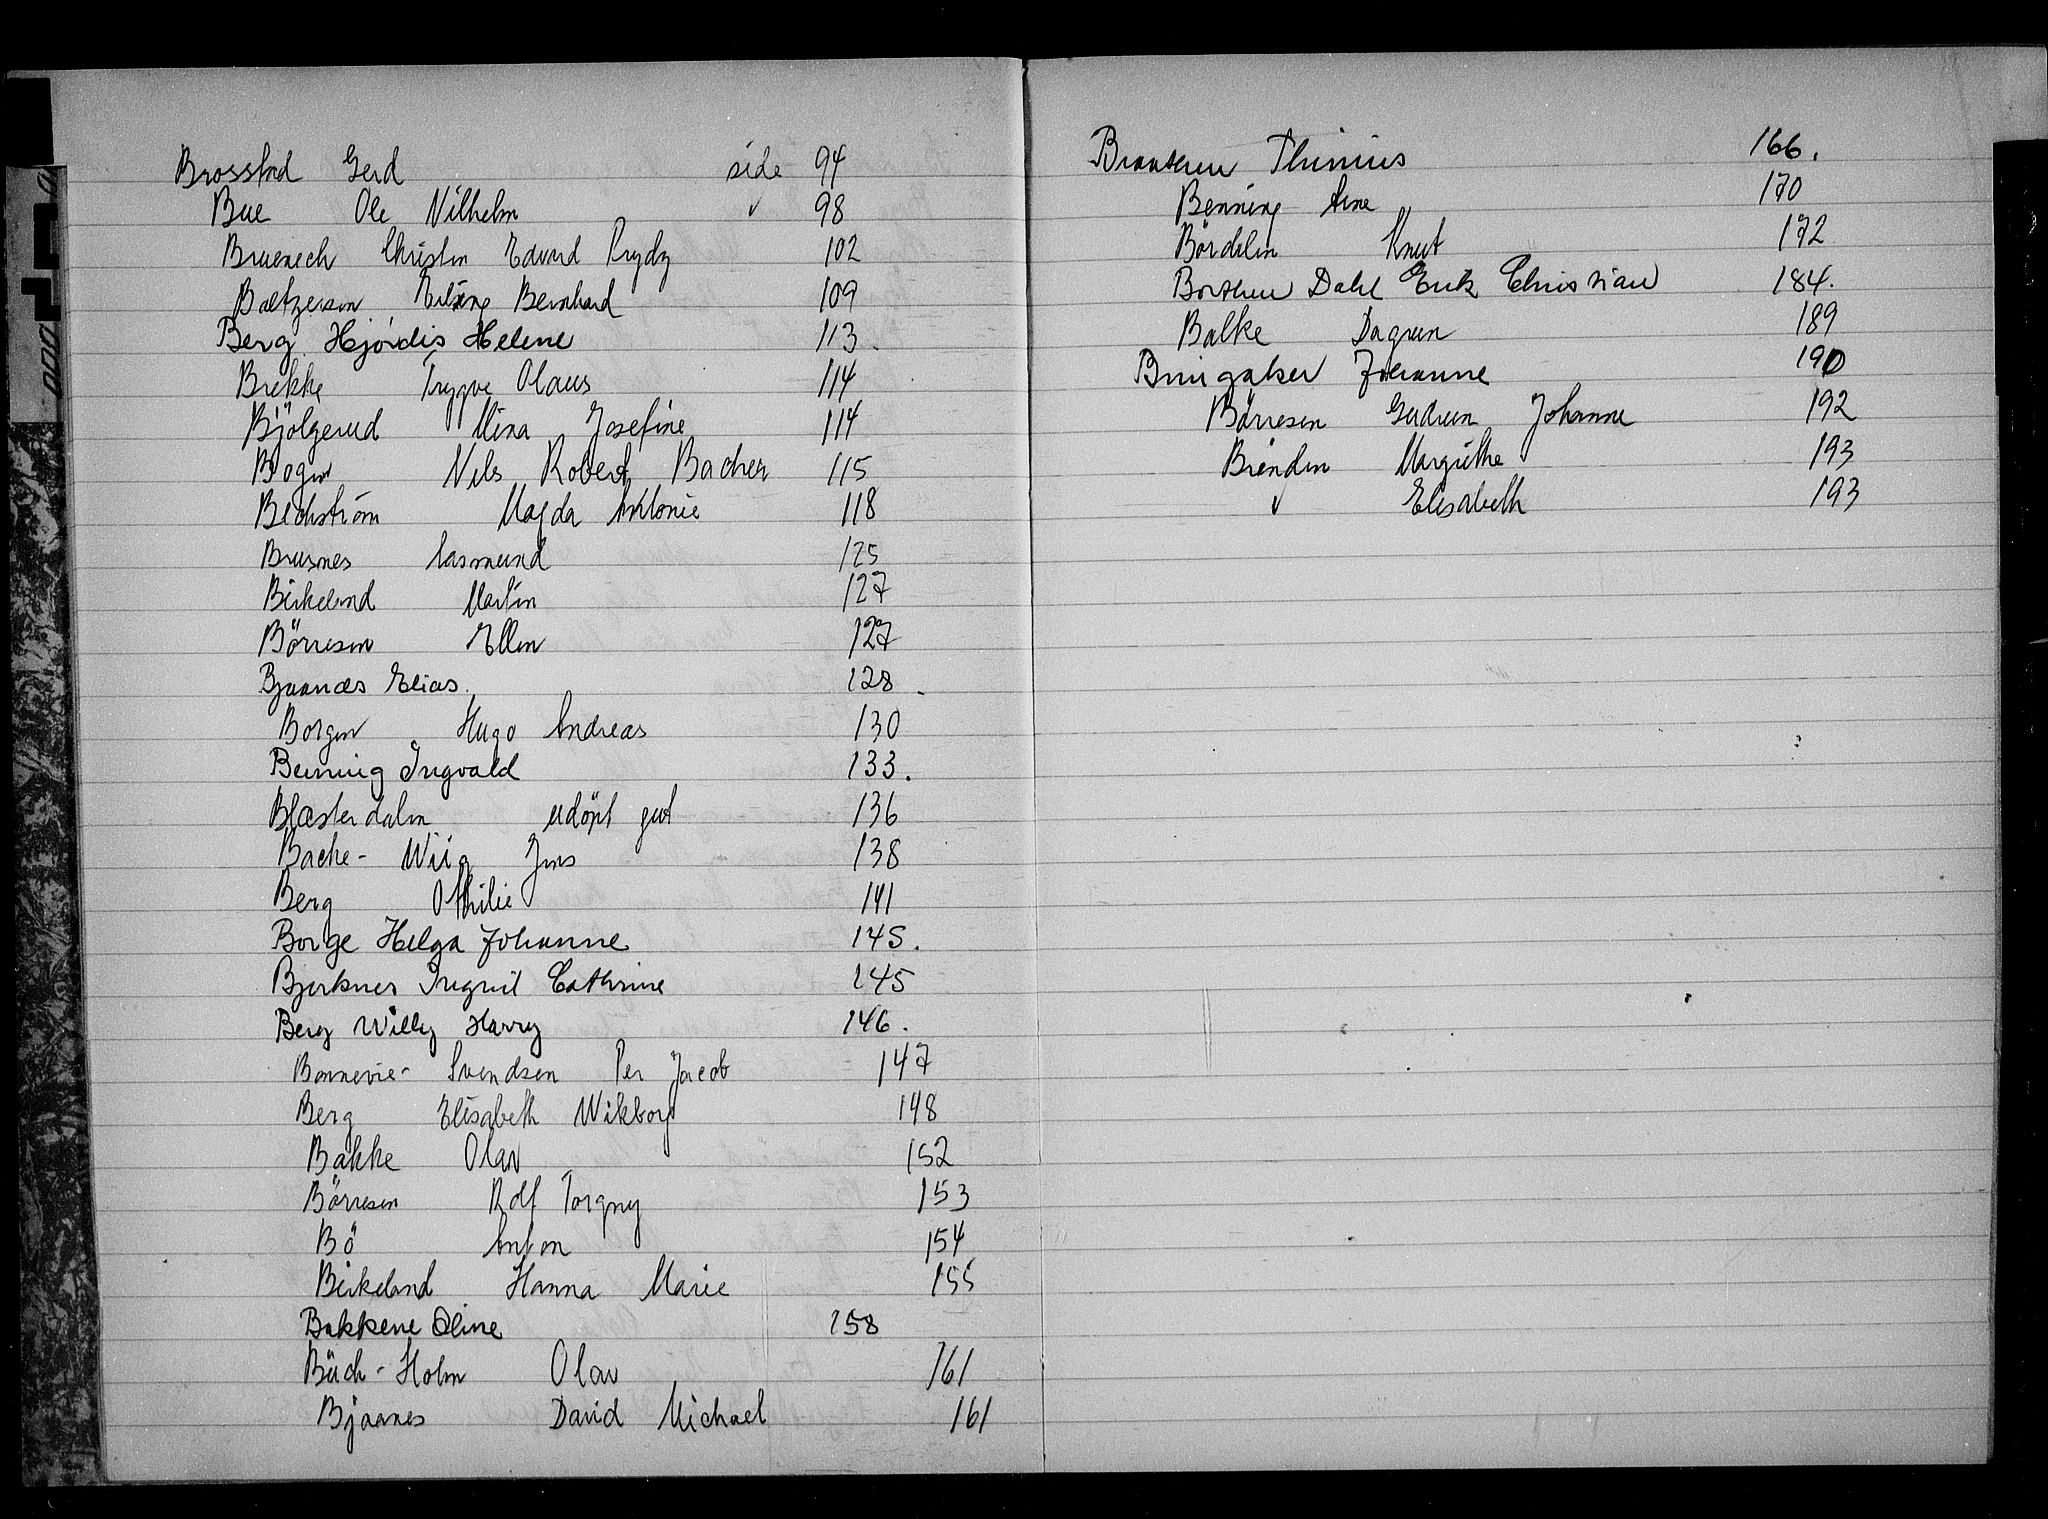 Brosstad Gerd side 94
Bue Ole Vilhelm ✓ 98
Bruenech Christen Edvard Prydz 102
Baltzersen Erling Bernhard 109
Berg Hjördis Helene 113.
Brekke Trygve Olaus 114
Bjölgerud Mina Josefine 114
Bogen Nils Robert Bacher 115
Bechström Magda Antonie 118
Brusnes Aasmund 125
Birkeland Martin 127
Börresen Ellen 127
Bjaanæs Elias. 128.
Borgen Hugo Andreas 130
Benning Ingvald 133.
Blæsterdalen udöpt gut 136
Bache-Wiig Jens 138
Berg Othilie 141
Borge Helga Johanne 145.
Bjerknes Ingrid Cathrine 145
Berg Willy Harry 146.
Bonnevie-Svendsen Per Jacob 147
Berg Elisabeth Wikborg 148
Bakke Olav 152
Börresen Rolf Torgny 153
Bö Anton 154
Birkeland Hanna Marie 155
Bakkene Oline 158
Bäch-Holm Olav 161
Bjaanes David Michael 161
Braathen Thinius 166.
Benning Arne 170
Bördalen Knut 172
Borthen Dahl Erik Christian 184.
Balke Dagrun 189
Johanne 190
Börresen Gudrun Johanne 192
Brenden Margrethe 193
✓ Elisabeth 193